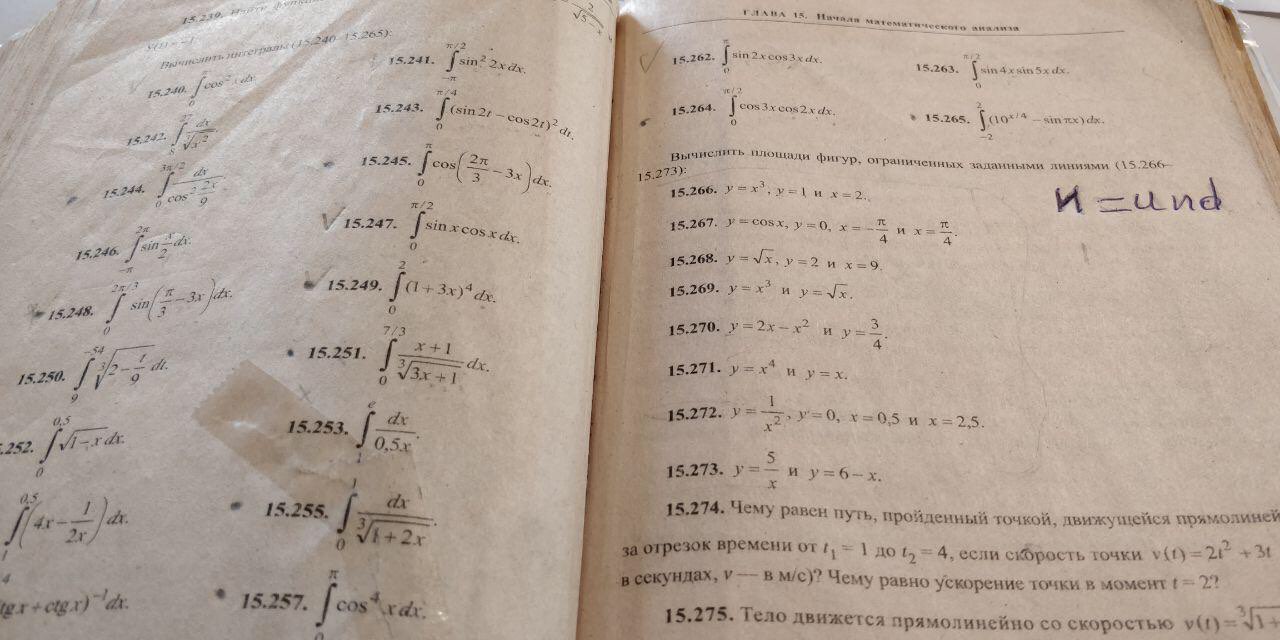 15.239. Найти
y(1) = −1.
2/√5−x
Вычислить интегралы (15.240–15.265):
15.240. ∫₀ cos² x dx.
15.241. ∫_{−π}^{π/2} sin² 2x dx.
15.242. ∫₈²⁷ dx/∛x².
15.243. ∫₀^{π/4} (sin 2t − cos 2t)² dt.
15.244. ∫₀^{3π/2} dx/cos² 2x/9.
15.245. ∫₀^π cos(2π/3 − 3x) dx.
15.246. ∫_{−π}^{2π} sin x/2 dx.
15.247. ∫₀^{π/2} sin x cos x dx.
15.248. ∫₀^{2π/3} sin(π/3 − 3x) dx.
15.249. ∫₀² (1 + 3x)⁴ dx.
15.250. ∫₉^{−54} ∛(2 − t/9) dt.
15.251. ∫₀^{7/3} (x + 1)/∛(3x + 1) dx.
.252. ∫₀^{0,5} √(1−x) dx.
15.253. ∫₁^e dx/0,5x.
∫₁^{0,5} (4x − 1/2x) dx.
15.255. ∫₀¹ dx/∛(1 + 2x).
4
tg x + ctg x)⁻¹ dx.
15.257. ∫₀^π cos⁴ x dx.
ГЛАВА 15. Начала математического анализа
15.262. ∫₀^π sin 2x cos 3x dx.
15.263. ∫₀^{π/2} sin 4x sin 5x dx.
15.264. ∫₀^{π/2} cos 3x cos 2x dx.
15.265. ∫_{−2}² (10^{x/4} − sin πx) dx.
Вычислить площади фигур, ограниченных заданными линиями (15.266–
15.273):
15.266. y = x³, y = 1 и x = 2.
и = und
15.267. y = cos x, y = 0, x = −π/4 и x = π/4.
15.268. y = √x, y = 2 и x = 9.
15.269. y = x³ и y = √x.
15.270. y = 2x − x² и y = 3/4.
15.271. y = x⁴ и y = x.
15.272. y = 1/x², y = 0, x = 0,5 и x = 2,5.
15.273. y = 5/x и y = 6 − x.
15.274. Чему равен путь, пройденный точкой, движущейся прямолиней
за отрезок времени от t₁ = 1 до t₂ = 4, если скорость точки v(t) = 2t² + 3t
в секундах, v — в м/с)? Чему равно ускорение точки в момент t = 2?
15.275. Тело движется прямолинейно со скоростью v(t) = ∛1+